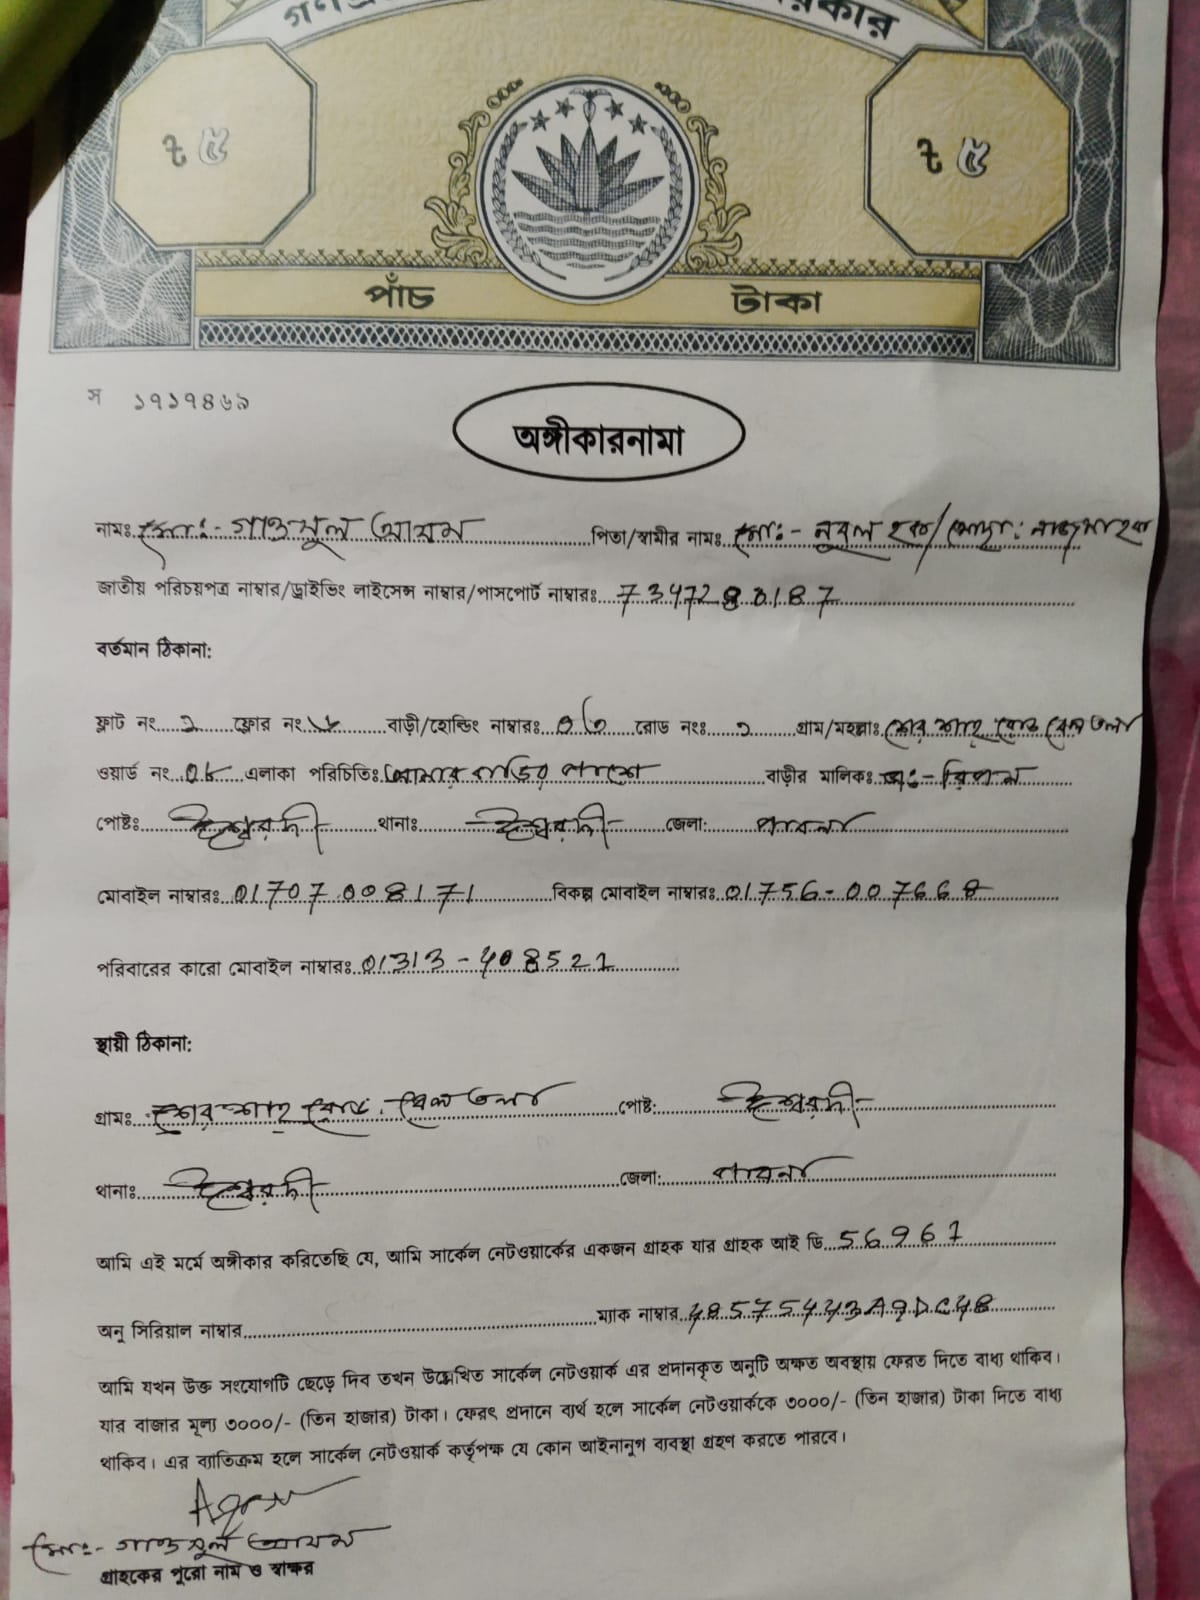 ৳ ৫
৳ ৫
পাঁচ টাকা
স ১৭১৭৪৬৯
অঙ্গীকারনামা
নামঃ মোঃ- গাজমুল আযম পিতা/স্বামীর নামঃ মোঃ- নুরুল হক/মোছা:
জাতীয় পরিচয়পত্র নাম্বার/ড্রাইভিং লাইসেন্স নাম্বার/পাসপোর্ট নাম্বারঃ 7347280187
বর্তমান ঠিকানা:
ফ্লাট নং ফ্লোর নং বাড়ী/হোল্ডিং নাম্বারঃ রোড নংঃ গ্রাম/মহল্লাঃ শের শাহ রোড বেল তলা
ওয়ার্ড নং এলাকা পরিচিতিঃ বাড়ির পাশে বাড়ীর মালিকঃ রিপন
পোষ্টঃ ঈশ্বরদী থানাঃ ঈশ্বরদী জেলা: পাবনা
মোবাইল নাম্বারঃ 01707008171 বিকল্প মোবাইল নাম্বারঃ 01756-007668
পরিবারের কারো মোবাইল নাম্বারঃ 01313-408521
স্থায়ী ঠিকানা:
গ্রামঃ শের শাহ রোড. বেল তলা পোষ্ট: ঈশ্বরদী
থানাঃ ঈশ্বরদী জেলা: পাবনা
আমি এই মর্মে অঙ্গীকার করিতেছি যে, আমি সার্কেল নেটওয়ার্কের একজন গ্রাহক যার গ্রাহক আই ডি 56961
অনু সিরিয়াল নাম্বার ম্যাক নাম্বার 48575443A9DC48
আমি যখন উক্ত সংযোগটি ছেড়ে দিব তখন উল্লেখিত সার্কেল নেটওয়ার্ক এর প্রদানকৃত অনুটি অক্ষত অবস্থায় ফেরত দিতে বাধ্য থাকিব।
যার বাজার মূল্য ৩০০০/- (তিন হাজার) টাকা। ফেরৎ প্রদানে ব্যর্থ হলে সার্কেল নেটওয়ার্ককে ৩০০০/- (তিন হাজার) টাকা দিতে বাধ্য
থাকিব। এর ব্যাতিক্রম হলে সার্কেল নেটওয়ার্ক কর্তৃপক্ষ যে কোন আইনানুগ ব্যবস্থা গ্রহণ করতে পারবে।
মোঃ- গাজমুল আযম
গ্রাহকের পুরো নাম ও স্বাক্ষর